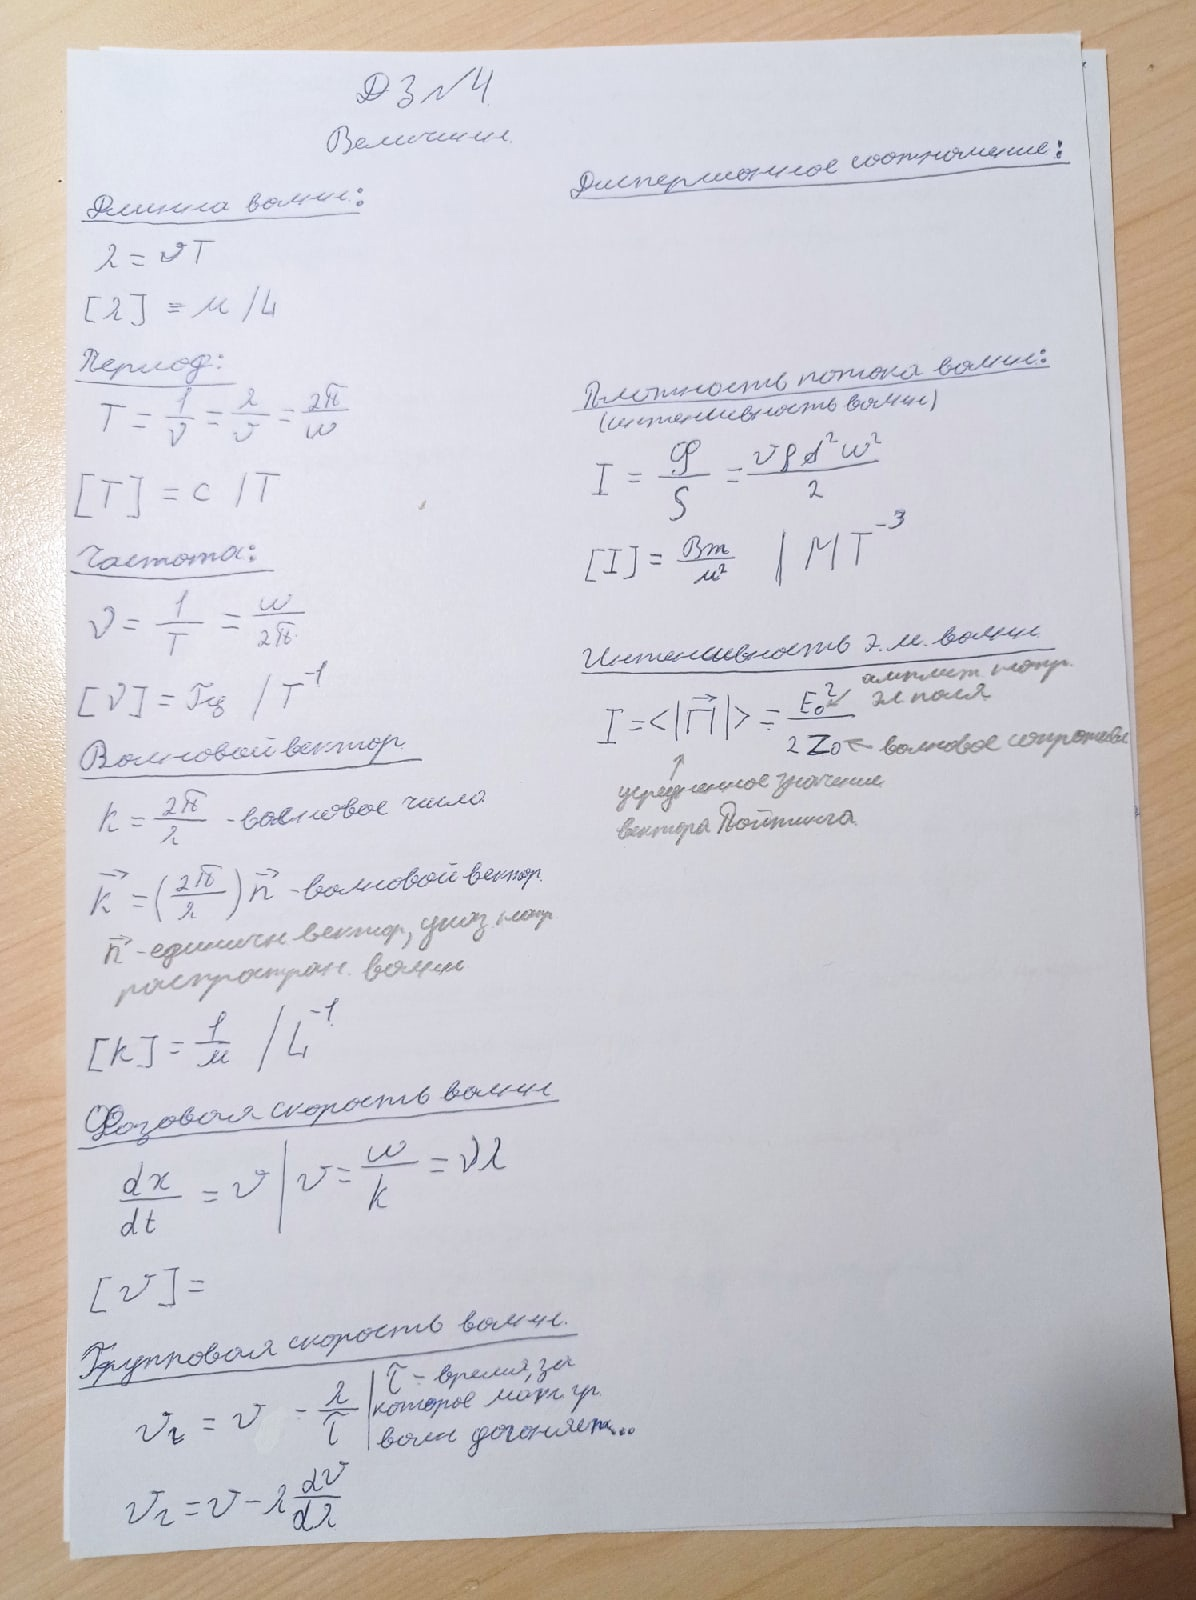 ДЗ №4
Величины.
Длинна волны:
λ = vT
[λ] = м /L
Период:
T = 1/ν = λ/v = 2π/ω
[T] = с /T
Частота:
ν = 1/T = ω/2π
[ν] = Гц /T⁻¹
Волновой вектор.
k = 2π/λ - волновое число
k⃗ = (2π/λ) n⃗ - волновой вектор.
n⃗ - единичн вектор, указ. напр.
распростран. волны
[k] = 1/м /L⁻¹
Фазовая скорость волны
dx/dt = v | v = ω/k = νλ
[v] =
Групповая скорость волны.
vг = v - λ/τ | τ - время, за
которое гр.
волн догоняет...
vг = v - λ dv/dλ
Дисперсионное соотношение:
Плотность потока волны:
(интенсивность волны)
I = Φ/S = vρA²ω²/2
[I] = Вт/м² | MT⁻³
Интенсивность э.м. волны.
I = <|П⃗|> = E₀²/2Z₀
амплит. напр.
эл поля
← волновое сопротивл
усредненное значение
вектора Пойтинга.